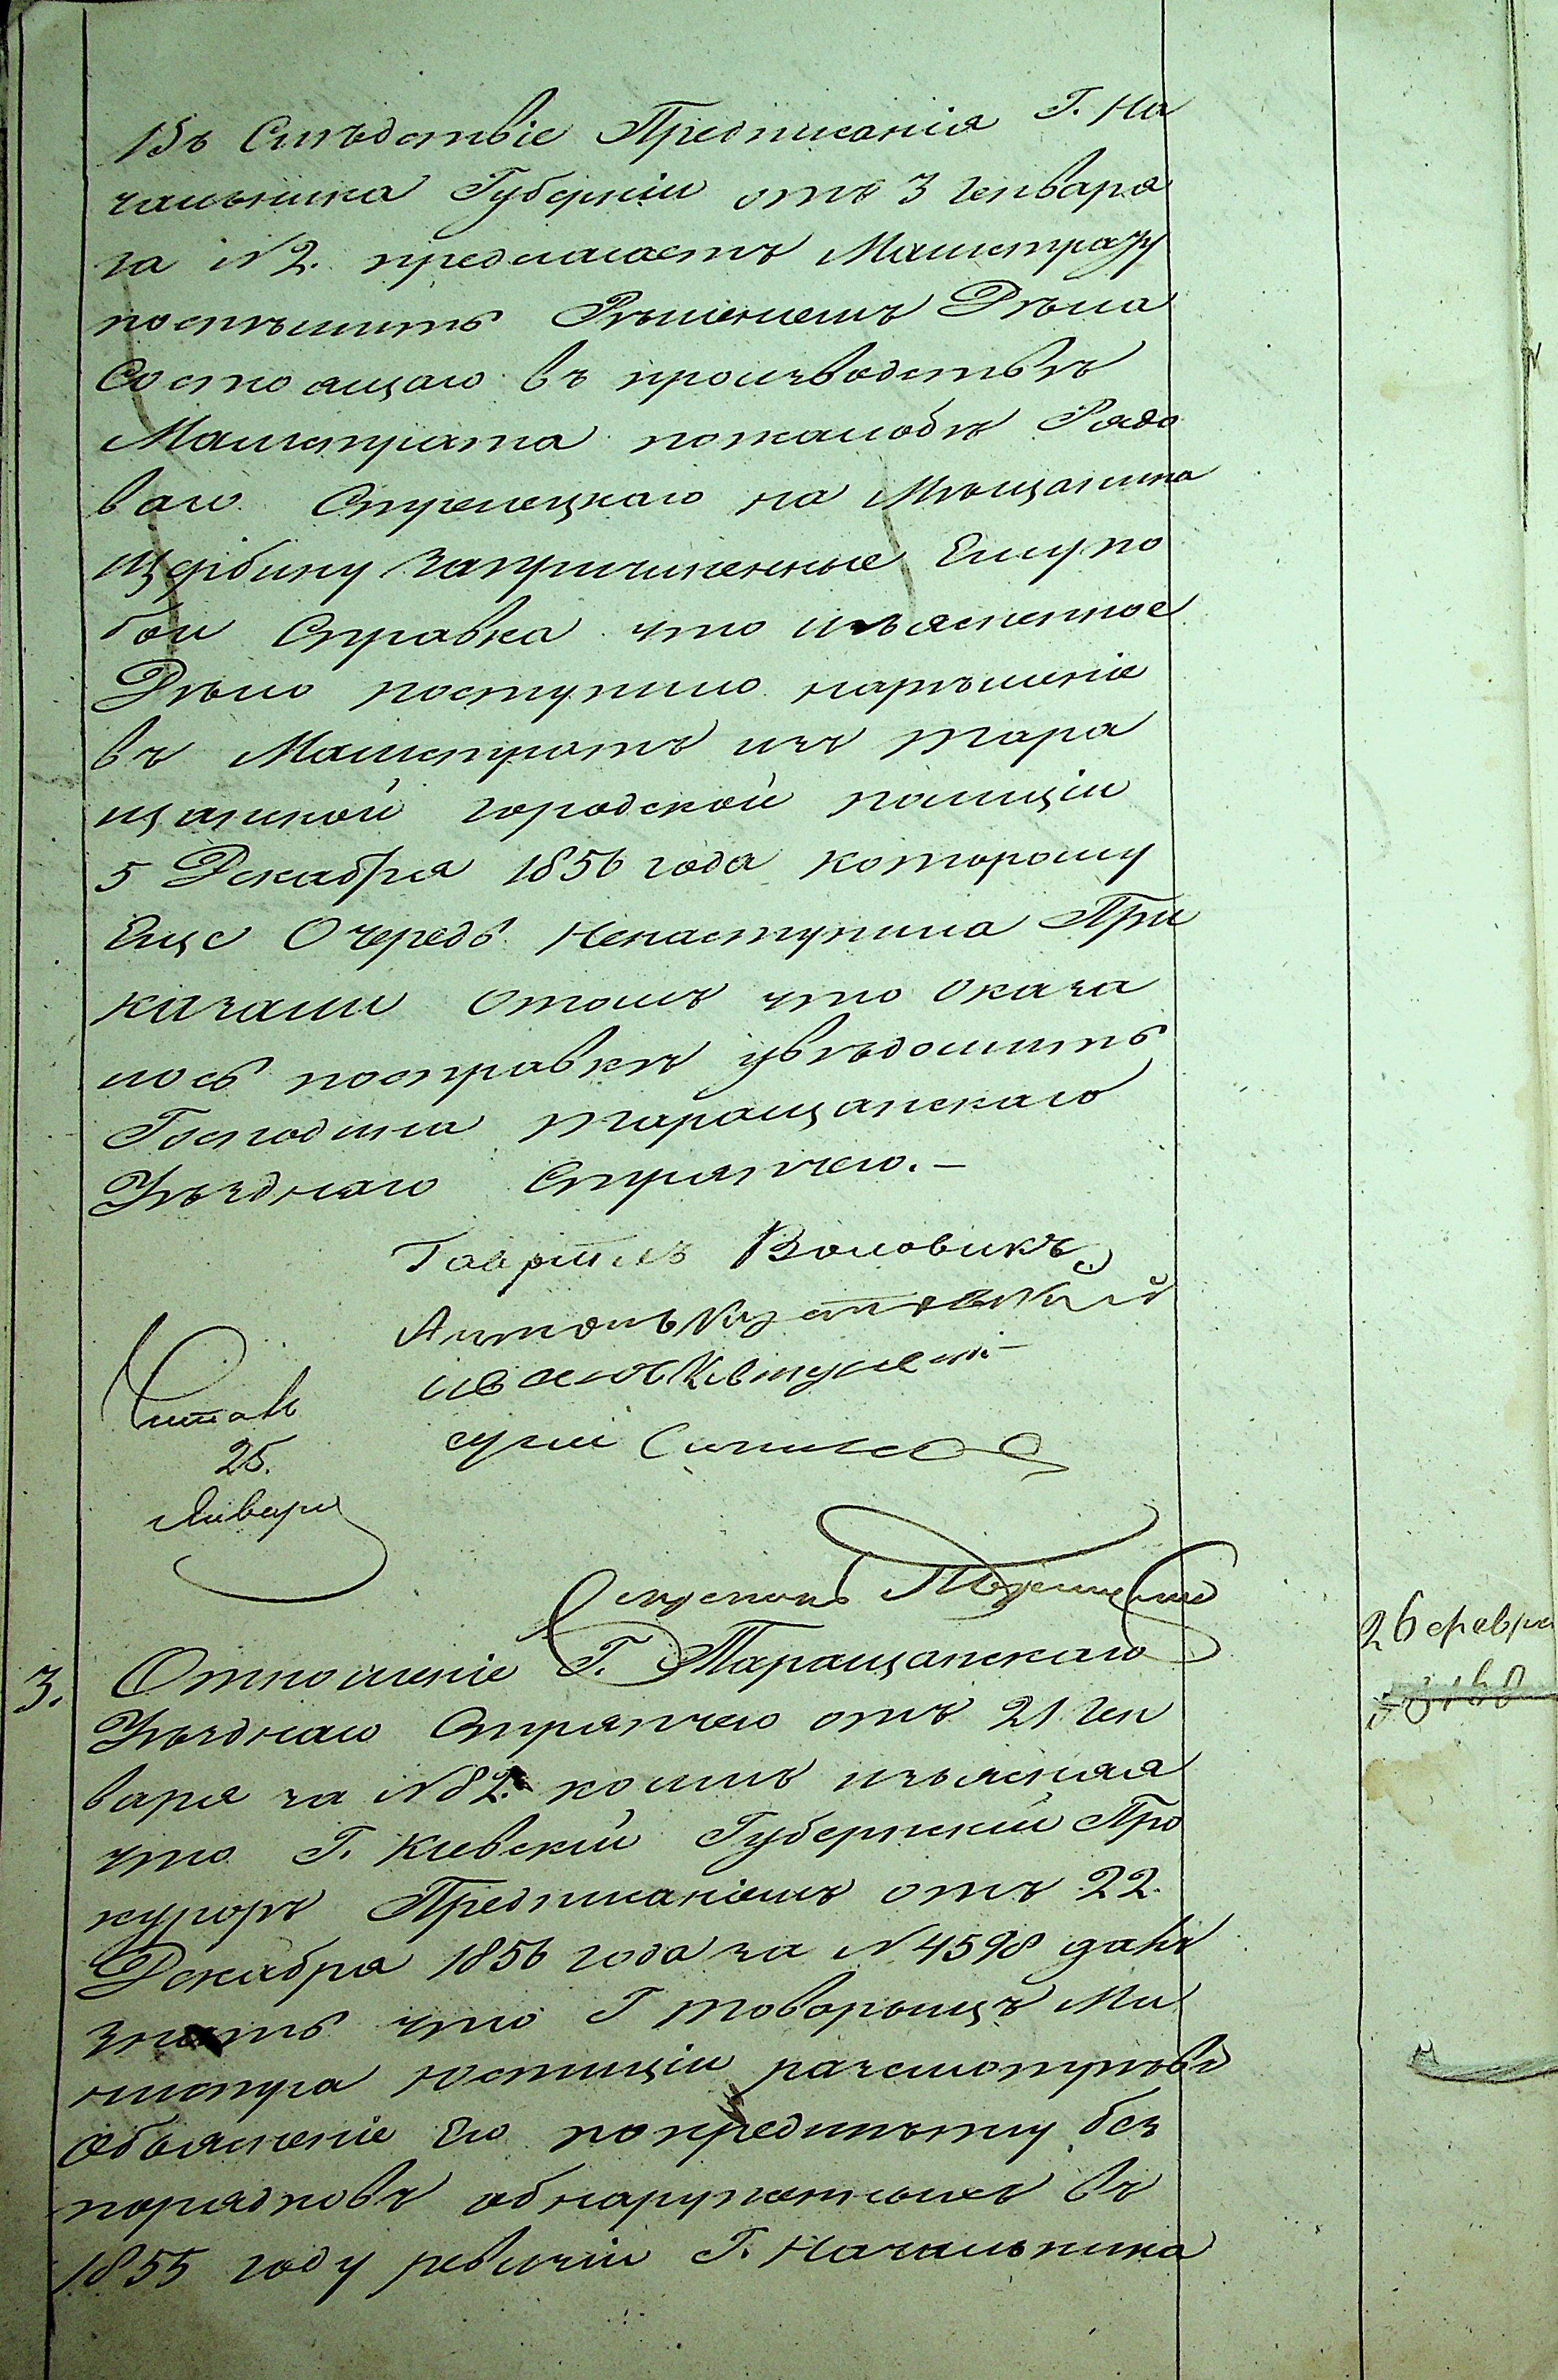 Въ Слѣдствіе Предписанія Г. На
чальника Губерніи отъ 3 Генваря
за N 2. предлагаетъ Магистрату
поспѣшить Рѣшеніемъ Дѣла
Состоящаго въ производствѣ
Магистрата пожалобѣ Рядо
ваго Стрелецкаго на Мѣщанина
Щербину запричиненные Ему по
бои Справка что изъясненное
Дѣло поступило нарѣшеніе
въ Магистратъ изъ Тара
щанской городской полиціи
5 Декабря 1856 года которому
Еще Очередь Ненаступила При
казали Отомъ что Оказа
лось посправкѣ увѣдомить
Господина Таращанскаго
Уѣзднаго Стряпчего.—
Гавріилъ Воловикъ
Антонъ
Иванъ
Читалъ
25.
Января
Секретарь
3. Отношеніе Г. Таращанскаго
Уѣзднаго Стряпчего отъ 21 Ген
варя за N 82. коимъ изъясняя
что Г. Кіевскій Губернскій Про
куроръ Предписаніемъ отъ 22.
Декабря 1856 года за N 4598 далъ
знать что Г Товарыщъ Ми
нистра Юстиціи разсмотрѣвъ
Объясненіе Его попредмѣту без
порядковъ обнаруженныхъ въ
1855 году ревизіи Г. Начальника
26 февра